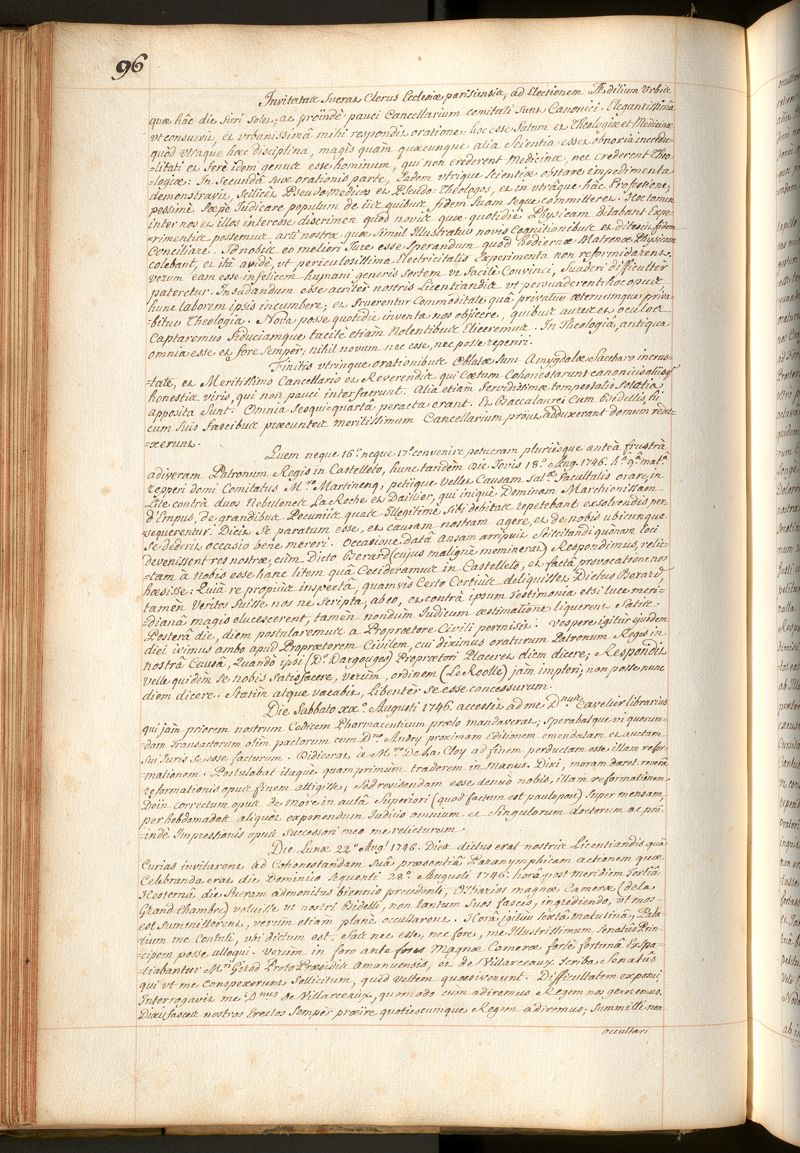 96
Invitatus fuerat Clerus Ecclesiæ parisiensis, ad Electionem Ædilium Urbis
quæ hâc die fieri solet; ac proïndè pauci Cancellarium comitati sunt Canonici. Elegantissimâ
ut consuevit, et urbanissimâ mihi respondit oratione: hoc esse fatum et Theologiæ et Medicinæ
quòd utraque hæc disciplina, magis quàm quæcunque alia Scientia esset obnoxia incredu-
=litati et ferè idem genus esse hominum, qui non crederent Medicinæ, nec crederent Theo-
=logiæ: In secundâ suæ orationis parte, Eadem utrique Scientiæ obstare impedimenta
demonstravit, scilicet Pseudo-medicos et Pseudo-Theologos, et in utrâque hâc Professione,
pessimè sæpè Judicare populum de iis quibus fidem suam seque committeret. Hoc tamen
inter nos et illos interesse discrimen quòd novis quæ quotidiè Physicam ditabant Expe-
=rimentis possemus arti nostræ quæ simùl illustratur novis Cognitionibus et ditescit, fidem
Conciliare. Id nobis eò meliori Jure esse sperandum quòd hodiernæ Matronæ Physicam
colebant, et ità avidè, ut periculosissima Electricitatis Experimenta non reformidarent.
verùm eam esse infelicem humani generis sortem ut facilè Convinci, suaderi difficulter
pateretur. Insudandum esse acriter nostris Licentiandis ut persuaderent: hoc opus
hunc laborem ipsis incumbere; et fruerentur Commoditate quâ privatur æternumque priva-
=bitur Theologia. Nova posse quotidiè inventa nos objicere, quibus aures et oculos
Captaremus fiduciamque tacitè etiam nolentibus Eliceremus. In Theologiâ, antiqua
omnia esse et fore semper; nihil novum nec esse, nec posse reperiri.
Finitis utrinque orationibus Oblatæ sunt Amygdalæ Saccharo incrus-
=tatæ, et Meritissimo Cancellario et Reverendis qui Cœtum Cohonestarunt canonicis aliisq;
honestis viris, qui non pauci interfuerunt. Alia etiam fervidissimæ tempestatis solatia
apposita sunt. Omnia sesqui-quartâ peracta erant. Et Baccalaurei Cum Bidellis hi
cum suis fascibus præeuntes meritissimum Cancellarium proùt adduxerant domum redu-
=xerunt.
Quem neque 16.a neque 17.a convenire potueram pluriesque anteà frustrà
adiveram Patronum Regis in Castelleto, hunc tandem Die Jovis 18.a Aug. 1746. h.a 9.a mat.a
repperi domi Comitatus M.ro Martineng, petiique vellet Causam Sal.æ Facultatis orare, in
Lite contrà duos Nebulones La Roche et Daillier, qui iniquè Dominam Marchionissam
d'Empus, de grandibus Pecuniis quas illegitimè sibi debitas repetebant exsolvendis per-
=sequerentur. Dicit se paratum esse, et causam nostram agere, et de nobis ubicunque
se dederit occasio benè mereri. Occasione datâ ansam arripuit sciscitandi quonam loci
devenissent res nostræ, cùm Dicto Berard (cujus malignè meminerat) Respondimus, relic-
=tam à nobis esse hanc litem quâ Cecideramus in Castelleto, et factâ provocatione nos
hæsisse: Quia re propiùs inspectâ, quamvis Certo Certiùs deliquisset Dictus Berard,
tamen veritos fuisse nos ne scripta, abeo, et contrà ipsum testimonia etsi luce meri-
=dianâ magis elucescerent, tamen nondùm Judicum æstimatione liquerent satis.
Posterâ die, diem postularemus à Proprætore Civili permisit. Vesperè igitur ejusdem
diei ivimus ambo apud Proprætorem Civilem, cui diximus oraturum Patronum Regis in
nostrâ Causâ, Quandò ipsi (D.º Dargouges) Proprætori placeret diem dicere; Respondit
velle quidem se nobis satisfacere, verùm, ordinem (Le Roolle) jam impleri; non posse nunc
diem dicere. Statim atque vacabit, libenter se esse concessurum.
Die Sabbato xx.a Augusti 1746. accessit ad me D.nus Cavelier librarius
qui jàm priorem nostrum Codicem Pharmaceuticum prælo mandaverat; Sperabatque vi quorum-
=dam Transactorum olim pactorum cum D.no Andry proximam Editionem emendatam et auctam
sui Juris se esse facturum. Didicerat à M.ro De la Cloy ad finem perductam esse illam refor-
=mationem. Postulabat itaque quamprimùm traderem in Manus. Dixi, moram daret reverà
reformationis opus finem attigisse; Sed revisendam esse denuò nobis, illam reformationem.
Dein correctum opus de More in aulâ Superiori (quod factum est paulopost) super mensam,
per hebdomadas aliquot exponendum Judicio omnium et Singulorum doctorum ac pro-
=indè Impressionis opus Successori meo me relicturum.
Die Lunæ 22.a Aug.i 1746. Dies dictus erat nostris Licentiandis quâ
Curias invitarent ad Cohonestandam Suâ præsentiâ Paranymphicam actionem quæ
Celebranda erat die Dominico Sequenti 28.a Augusti 1746. horâ post Meridiem Tertiâ
Hesternâ die fueram admonitus biennio præcedenti, Ostiarios magnæ Cameræ (de la
Grand Chambre) voluisse ut nostri Bidelli, non tantum suos fasces, ingrediendo, ut mos-
=est summitterent, verùm etiam planè occultarent. Horâ igitur sextâ matutinâ, Pala-
=tium me Contuli, ubi dictum est, fas nec esse, nec fore, me Illustrissimum Senatûs Prin-
=cipem posse alloqui. Verùm in foro ante fores Magnæ Cameræ fortè fortunâ Expa-
=tiabantur M.ri Girod Proto-Præsidis Amanuensis, et de Villarceaux Scriba Senatûs
qui ut me Conspexerunt Sollicitum, quid vellem quæsiverunt. Difficultatem exposui
Interrogavit me D.nus de Villarceaux, quomodo cùm adiremus Regem nos gereremus.
Dixi fasces nostros Erectos semper præire quotiescumque Regem adiremus; summitti non
occultari